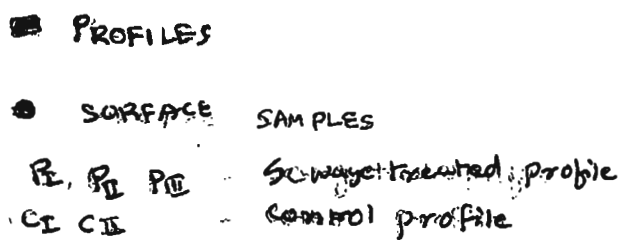 PROFILES
SURFACE SAMPLES
PI, PII PIII - Sewage treated profile
CI CII - control profile